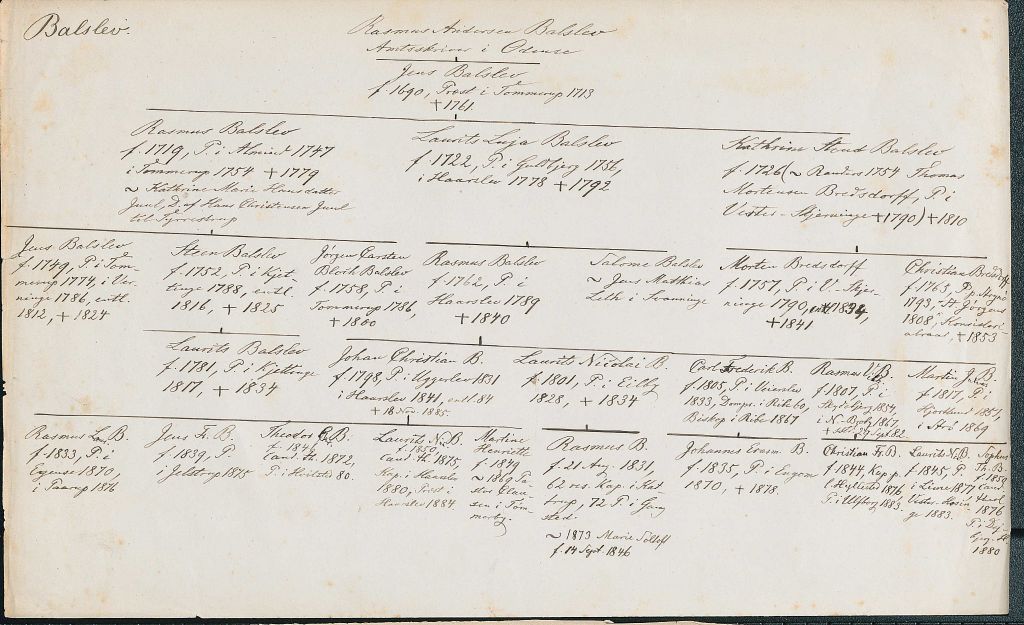 Balslev.
Rasmus Andersen Balslev
Amtsskriver i Odense
Jens Balslev
f. 1690, Præst i Tommerup 1713
+ 1761.
Rasmus Balslev
f. 1719, P. i Almind 1747
i Tommerup 1754 + 1779
~ Kathrine Marie Hansdatter
Juul, D. af Hans Christensen Juul
til
Laurits Luja Balslev
f. 1722, P. i Guldbjerg 1756,
i Haarslev 1778 + 1792
Kathrine Balslev
f. 1726 (~ Randers 1754 Thomas
Mortensen Bredsdorff, P. i
Vester-Skjerninge + 1790) + 1810
Jens Balslev
f. 1749, P. i Tom-
merup 1774, i Ver-
ninge 1786, entl.
1812, + 1824
Steen Balslev
f. 1752, P. i Kjet-
tinge 1788, entl.
1816, + 1825
Jörgen Carsten
Bloch Balslev
f. 1758, P. i
Tommerup 1786,
+ 1800
Rasmus Balslev
f. 1762, P. i
Haarslev 1789
+ 1840
Salome Balslev
~ Jens Mathias
Leth i
Morten Bredsdorff
f. 1757, P. i V. Skjer-
ninge 1790, entl. 1834,
+ 1841
Christian Bredsdorff
f. 1763, P. p.
1793, St. Jörgens
1808, Konsistori-
alraad, + 1853
Laurits Balslev
f. 1781, P. i Kjettinge
1817, + 1834
Johan Christian B.
f. 1798, P. i Uggerslev 1831
i Haarslev 1841, entl. 84
+ 18 Nov. 1885.
Laurits Nicolai B.
f. 1801, P. i Eilby
1828, + 1834
Carl Frederik B.
f. 1805, P. i
1833, Domp. i Ribe 60,
Biskop i Ribe 1867
Rasmus B.
f. 1807, P. i
1854,
i N. Broby 1867,
29 Sept. 82.
Martin B.
f. 1817, P. i
1857,
i 1869
Rasmus B.
f. 1833, P. i
1870,
i Taarup 1876
Jens Fr. B.
f. 1839, P.
i Jelstrup 1875
Theodor B.
f. 1847,
Cand. th. 1872,
P. i 80.
Laurits N. B.
f. 1850,
Cand. th. 1875,
Kap. i Haarslev
1880, Præst i
Haarslev 1884.
Martine
Henriette
f. 1849
~ 1869 Pa-
stor Clau-
sen i Tom-
merby.
Rasmus B.
f. 21 Aug. 1831,
62 res. Kap. i Ket-
trup, 72 P. i
~ 1873 Marie
f. 14 Sept. 1846
Johannes Erasm. B.
f. 1835, P. i
1870, + 1878.
Christian Fr. B.
f. 1844, Kap. p.
1876,
P. i Ulfborg 1883.
Laurits N. B.
f. 1845, P.
i 1877,
Vester-
1883.
Sophus
Th. B.
f. 1850
Cand.
theol.
1876
P. i
1880